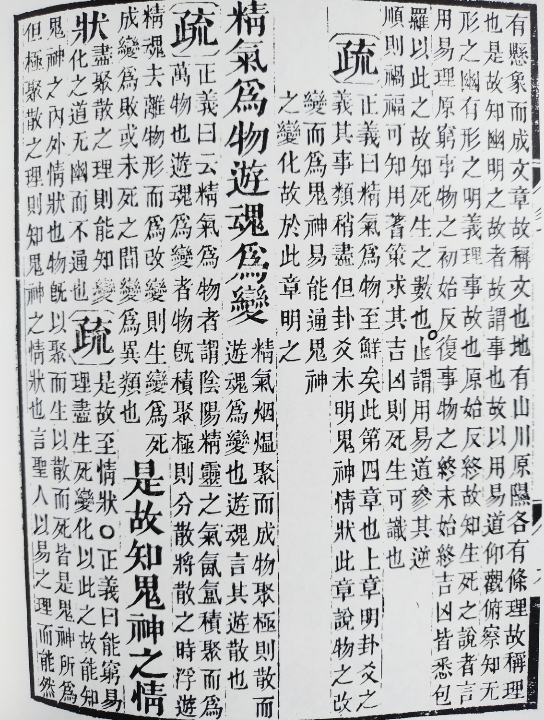 有懸象而成文章故稱文也地有山川原隰各有條理故稱理
也是故知幽明之故者故謂事也故以用易道仰觀俯察知无
形之幽有形之明義理事故也原始反終故知生死之說者言
用易理原窮事物之初始反復事物之終末始終吉凶皆悉包
羅以此之故知死生之數也。止謂用易道參其逆
順則禍福可知用蓍策求其吉凶則死生可識也
疏
正義曰精氣爲物至鮮矣此第四章也上章明卦爻之
義其事類稍盡但卦爻未明鬼神情狀此章說物之改
變而爲鬼神易能通鬼神
之變化故於此章明之
精氣爲物遊魂爲變
精氣烟熅聚而成物聚極則散而
遊魂爲變也遊魂言其遊散也
疏
正義曰云精氣爲物者謂陰陽精靈之氣氤氳積聚而爲
萬物也遊魂爲變者物旣積聚極則分散將散之時浮遊
精魂去離物形而爲改變則生變爲死
成變爲敗或未死之間變爲異類也
是故知鬼神之情
狀
盡聚散之理則能知變
化之道无幽而不通也
疏
是故至情狀○正義曰能窮易
理盡生死變化以此之故能知
鬼神之內外情狀也物旣以聚而生以散而死皆是鬼神所爲
但極聚散之理則知鬼神之情狀也言聖人以易之理而能然